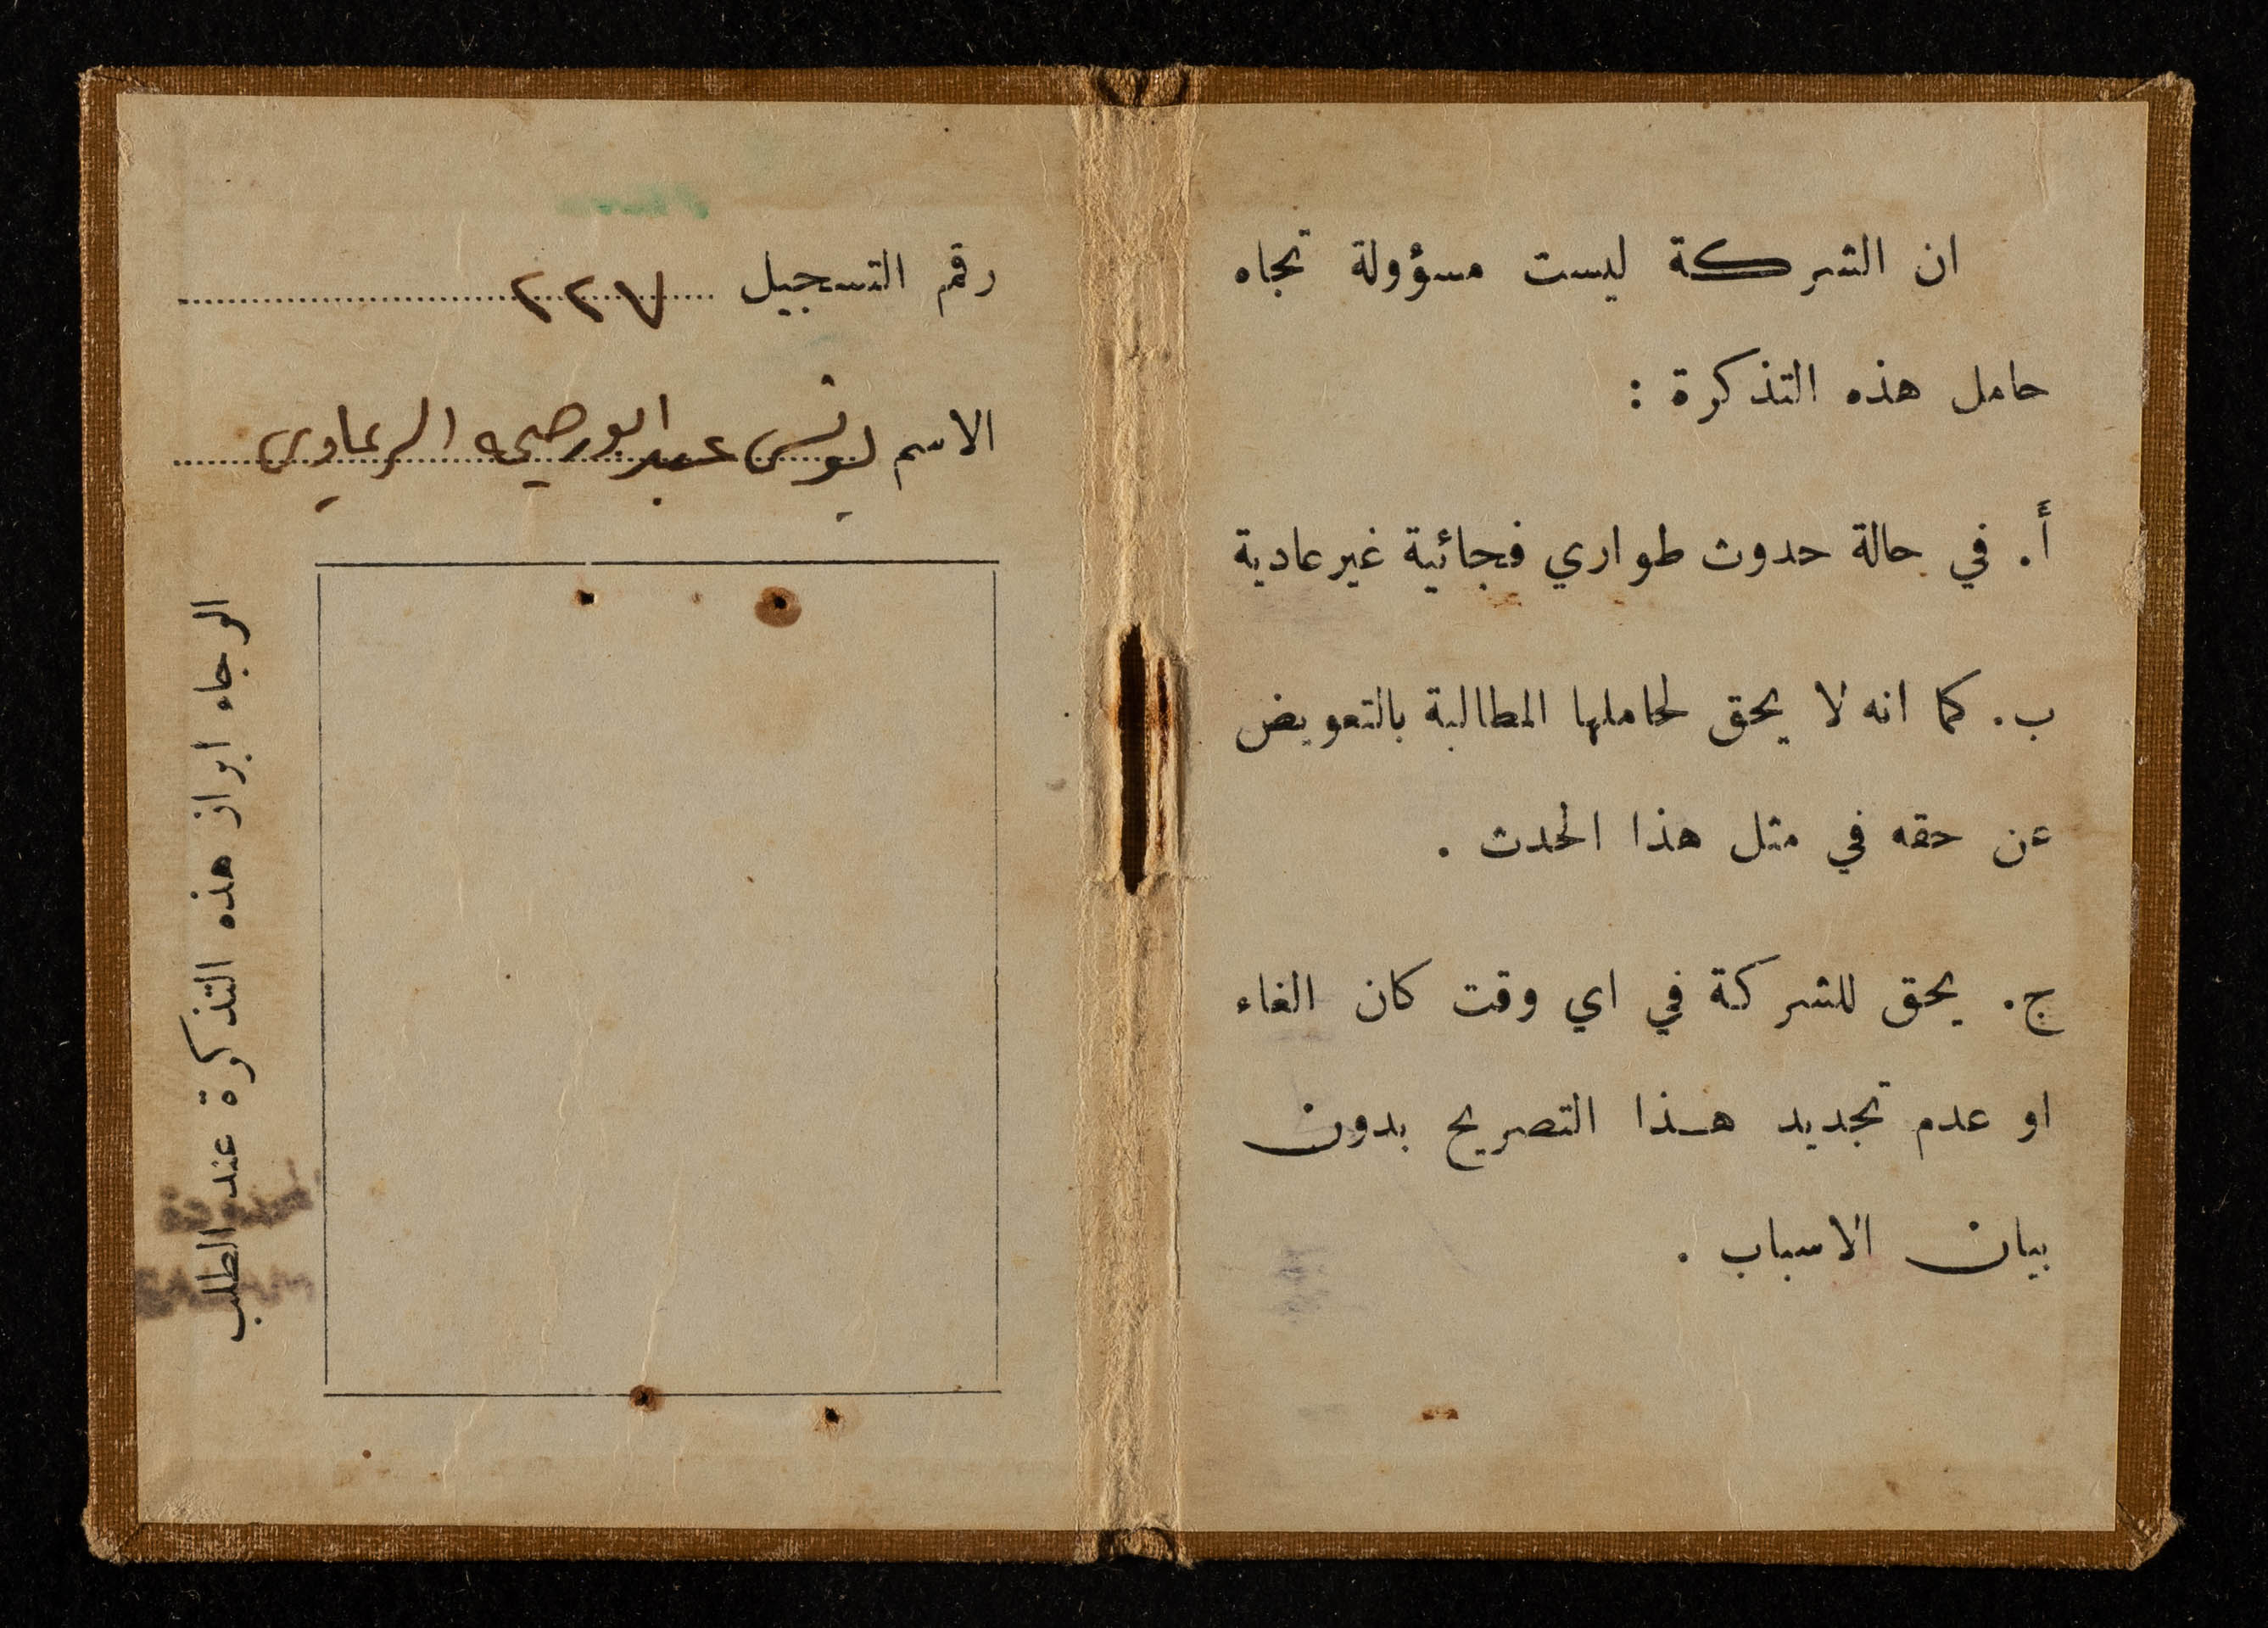 ان الشركة ليست مسؤولة تجاه
حامل هذه التذكرة :
أ. في حالة حدوث طواري فجائية غير عادية
ب. كما انه لا يحق لحاملها المطالبة بالتعويض
عن حقه في مثل هذا الحدث .
ج. يحق للشركة في اي وقت كان الغاء
او عدم تجديد هـذا التصريح بدون
بيان الاسباب .
رقم التسجيل ٢٢٧
الاسم يونس عبد الريماوي
الرجاء ابراز هذه التذكرة عند الطلب